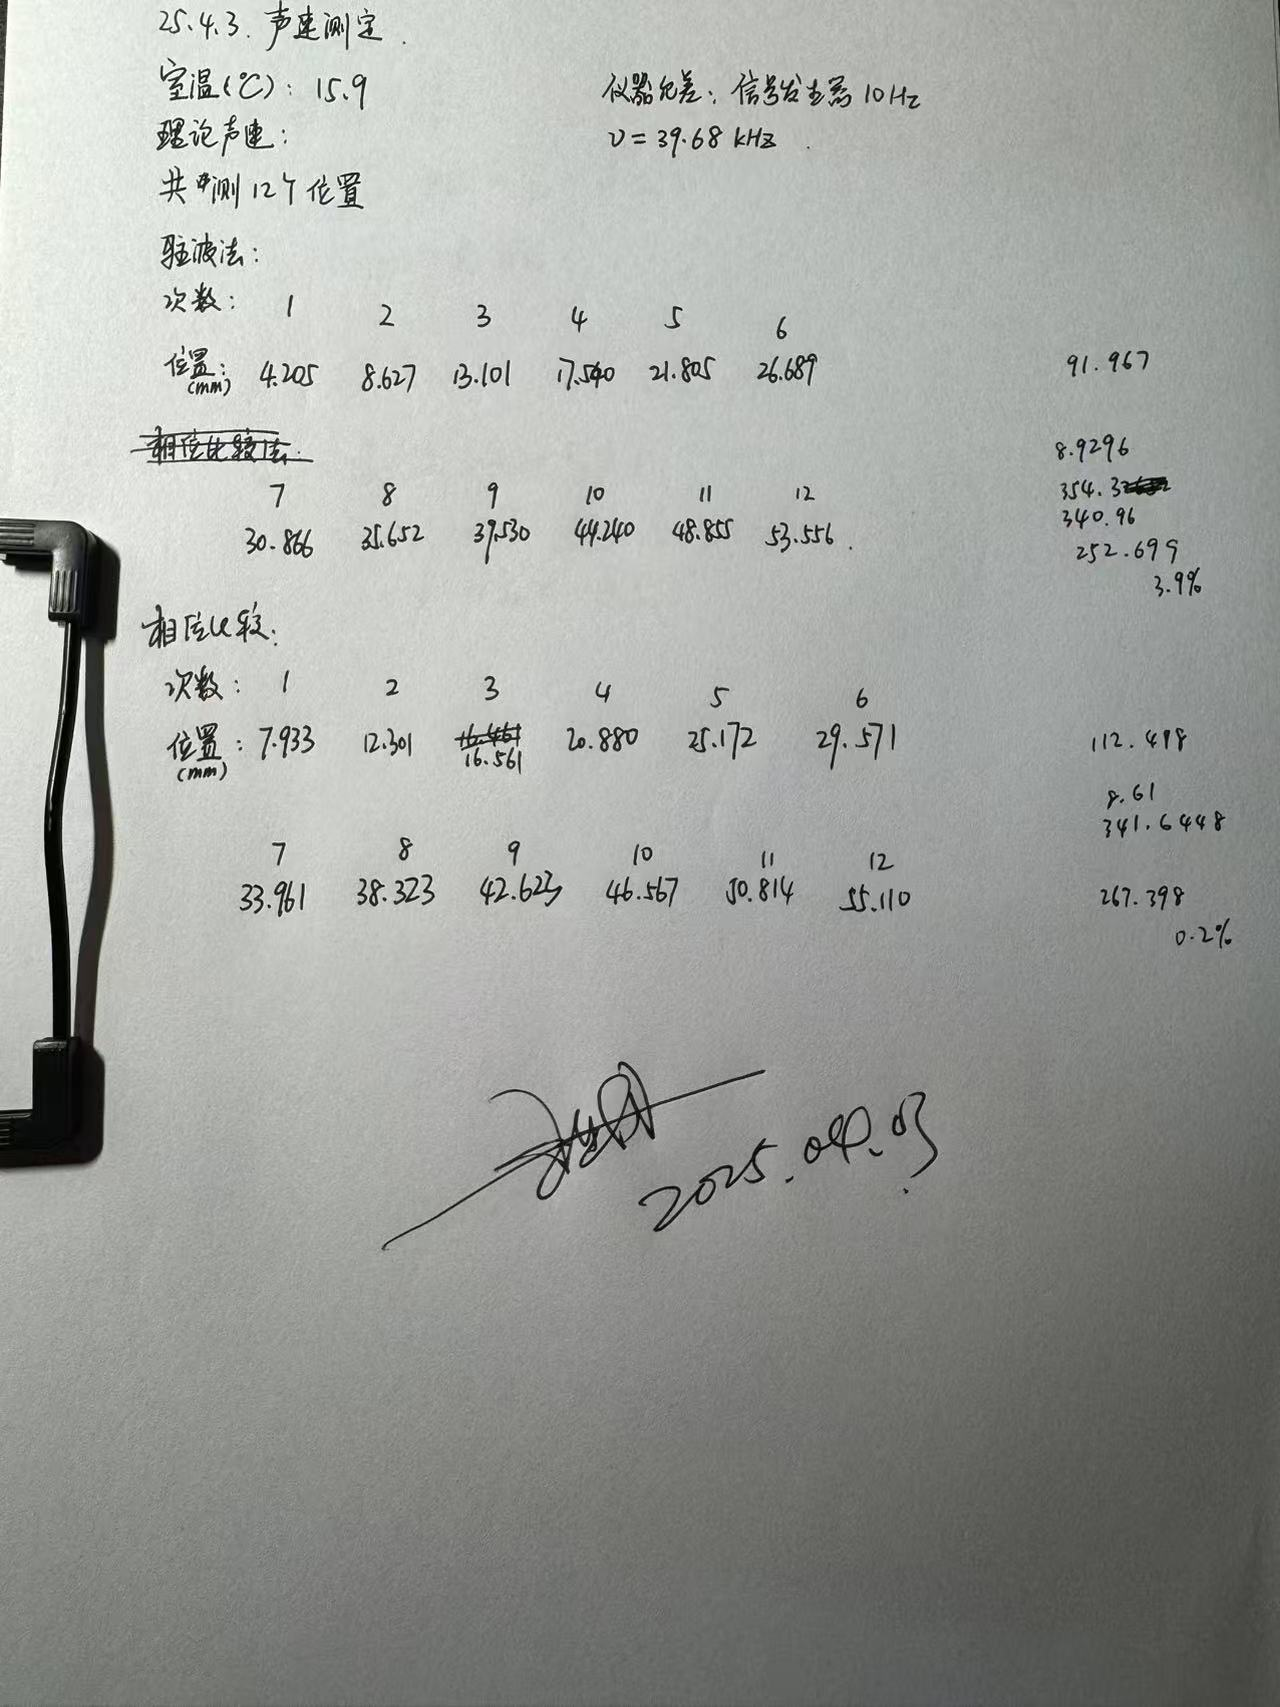 25.4.3. 声速测定.
室温(℃): 15.9
仪器允差: 信号发生器 10Hz
理论声速:
υ = 39.68 kHz.
共测12个位置
驻波法:
次数: 1 2 3 4 5 6
位置: 4.205 8.627 13.101 17.540 21.805 26.689 91.967
(mm)
相位比较法:
8.9296
7 8 9 10 11 12
354.3
340.96
30.866 35.652 39.530 44.240 48.855 53.556.
252.699
3.9%
相位比较:
次数: 1 2 3 4 5 6
位置: 7.933 12.301 16.461 20.880 25.172 29.571 112.418
16.561
(mm)
8.61
341.6448
7 8 9 10 11 12
33.961 38.323 42.623 46.567 50.814 55.110 267.398
0.2%
2025.04.03